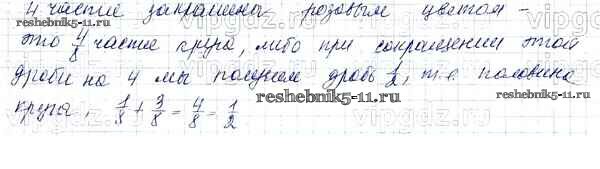 4 части закрашена розовым цветом -
это 4/8 части круга, либо при сокращении этой
дроби на 4 мы получаем дробь 1/2, т.е. половина
круга. 1/8 + 3/8 = 4/8 = 1/2
reshebnik5-11.ru
reshebnik5-11.ru
vipgdz.ru